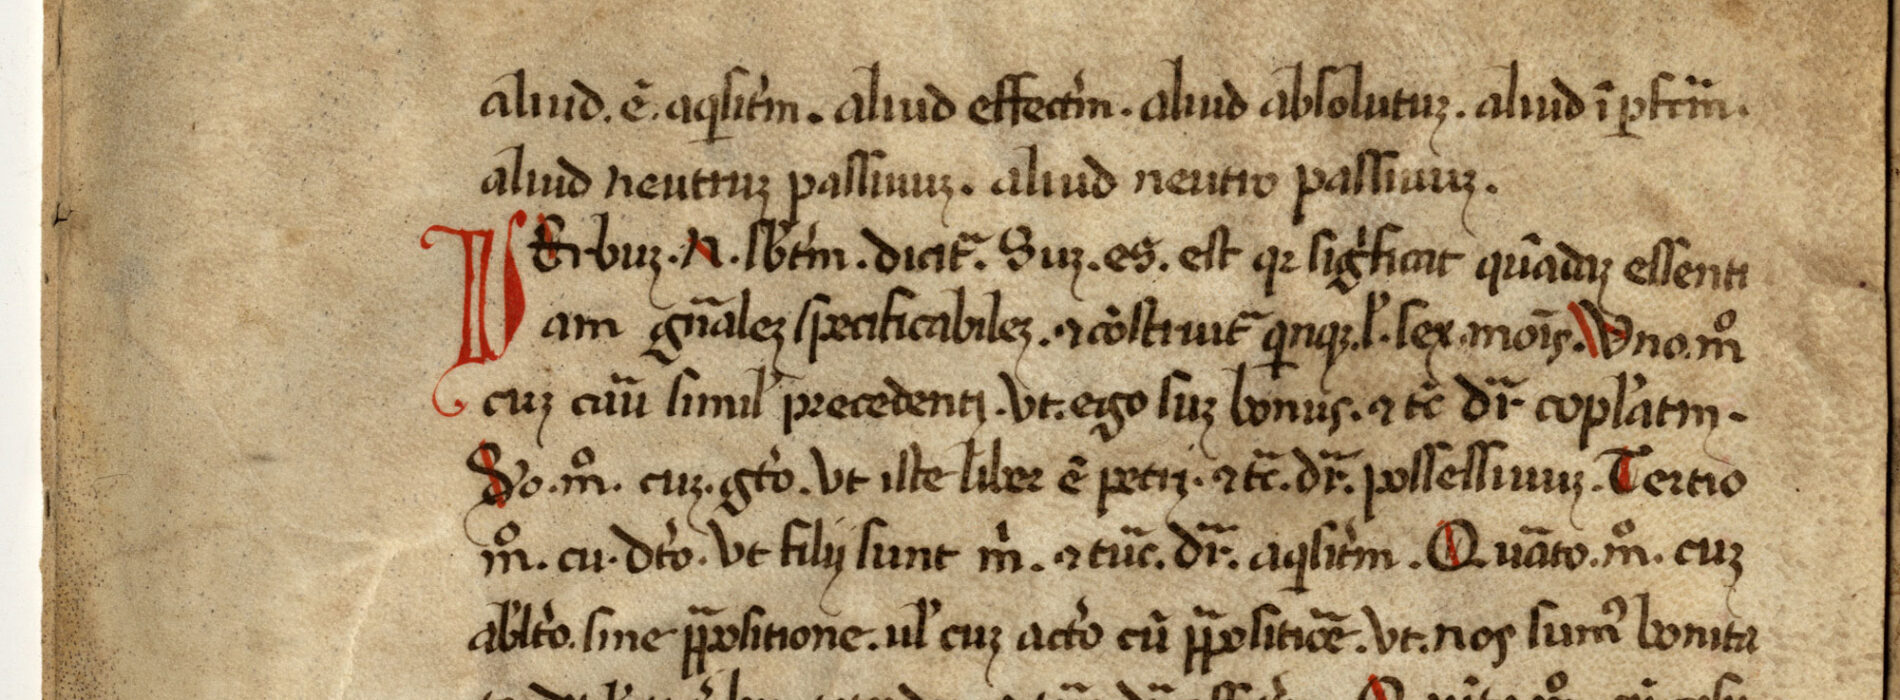 aliud. ē. aqͥsitͥm. aliud effectͥm. aliud absolutuꝫ. aliud īꝑſcͥm.
aliud neutruꝫ paſſiuuꝫ. aliud neutro paſſiuuꝫ.
VErbuꝫ. N. ſbͣtͥm. dicitᷓ. Suꝫ. es. est qꝛ ſigͥficat quādaꝫ eſſenti
am gn̄aleꝫ ſpecificabileꝫ. ⁊ cōſtruitᷓ qͥnqꝫ. lˀ. ſex. moīs. Vno. mͦ
cuꝫ cāū ſimilˀ precedenti. vt. ego ſuꝫ bonus. ⁊ tc̄ dr̄ coplˀatm.
Sͦo. mͦ. cuꝫ. gtͥo. vt iſte liber ē petrj. ⁊ tc̄. dr̄. poſſeſſiuuꝫ. Tertio
mͦ. cu. dtͥo. vt filij ſunt mͥ. ⁊ tūc. dr̄. aqͥsitͥm. Quāto. mͦ. cuꝫ
ablˀtͥo. ſine p̄poſitione. ulˀ cuꝫ actͥo cū p̄poſitiōe. vt. nos ſumꝰ bonita